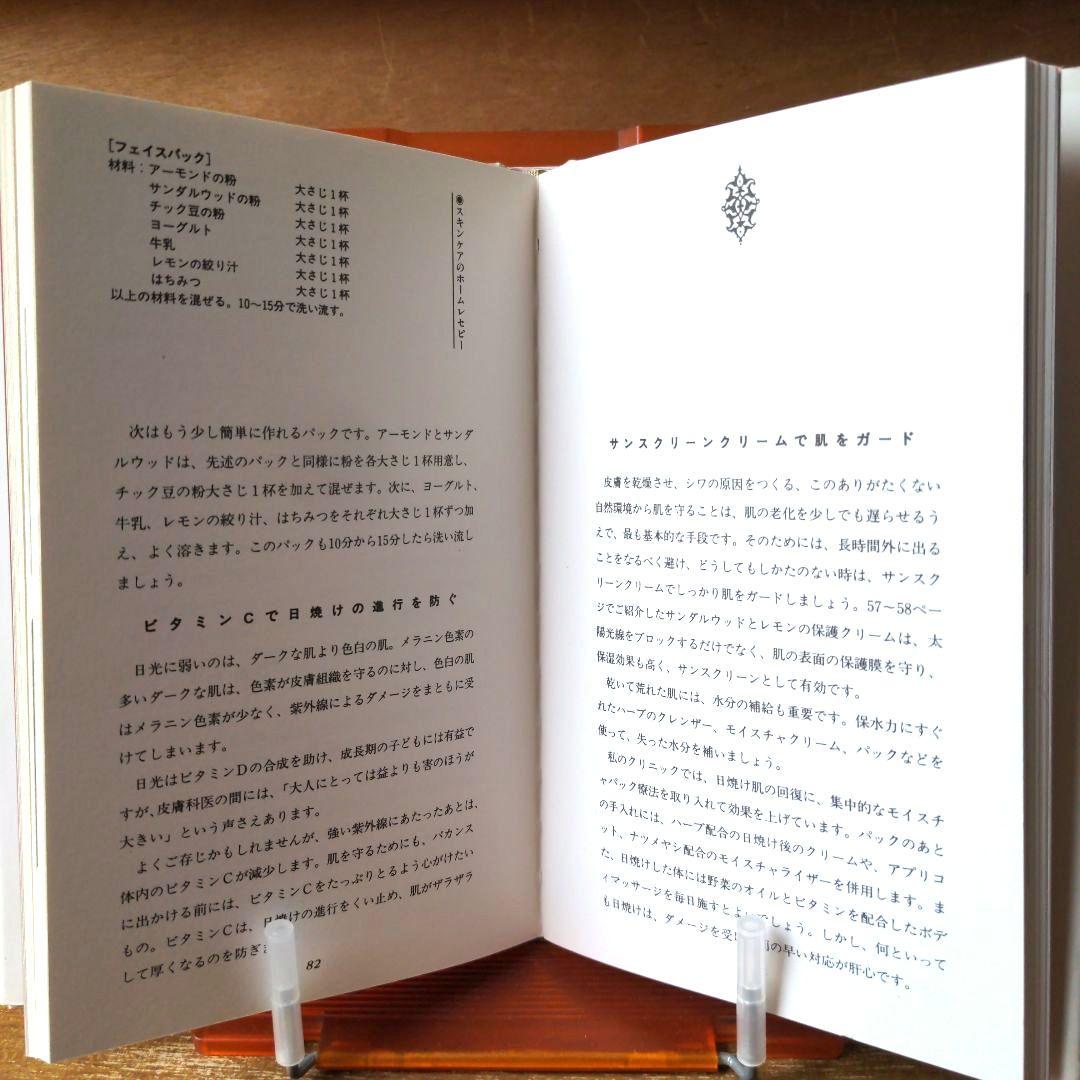 [フェイスパック]
材料：アーモンドの粉 大さじ1杯
サンダルウッドの粉 大さじ1杯
チック豆の粉 大さじ1杯
ヨーグルト 大さじ1杯
牛乳 大さじ1杯
レモンの絞り汁 大さじ1杯
はちみつ 大さじ1杯
以上の材料を混ぜる。10〜15分で洗い流す。
◉スキンケアのホームレセピー
次はもう少し簡単に作れるパックです。アーモンドとサンダ
ルウッドは、先述のパックと同様に粉を各大さじ1杯用意し、
チック豆の粉大さじ1杯を加えて混ぜます。次に、ヨーグルト、
牛乳、レモンの絞り汁、はちみつをそれぞれ大さじ1杯ずつ加
え、よく溶きます。このパックも10分から15分したら洗い流し
ましょう。
ビタミンCで日焼けの進行を防ぐ
日光に弱いのは、ダークな肌より色白の肌。メラニン色素の
多いダークな肌は、色素が皮膚組織を守るのに対し、色白の肌
はメラニン色素が少なく、紫外線によるダメージをまともに受
けてしまいます。
日光はビタミンDの合成を助け、成長期の子どもには有益で
すが、皮膚科医の間には、「大人にとっては益よりも害のほうが
大きい」という声さえあります。
よくご存じかもしれませんが、強い紫外線にあたったあとは、
体内のビタミンCが減少します。肌を守るためにも、バカンス
に出かける前には、ビタミンCをたっぷりとるよう心がけたい
もの。ビタミンCは、日焼けの進行をくい止め、肌がザラザラ
して厚くなるのを防ぎま
82
サンスクリーンクリームで肌をガード
皮膚を乾燥させ、シワの原因をつくる、このありがたくない
自然環境から肌を守ることは、肌の老化を少しでも遅らせるう
えで、最も基本的な手段です。そのためには、長時間外に出る
ことをなるべく避け、どうしてもしかたのない時は、サンスク
リーンクリームでしっかり肌をガードしましょう。57〜58ペー
ジでご紹介したサンダルウッドとレモンの保護クリームは、太
陽光線をブロックするだけでなく、肌の表面の保護膜を守り、
保湿効果も高く、サンスクリーンとして有効です。
乾いて荒れた肌には、水分の補給も重要です。保水力にすぐ
れたハーブのクレンザー、モイスチャクリーム、パックなどを
使って、失った水分を補いましょう。
私のクリニックでは、日焼け肌の回復に、集中的なモイスチ
ャパック療法を取り入れて効果を上げています。パックのあと
の手入れには、ハーブ配合の日焼け後のクリームや、アプリコ
ット、ナツメヤシ配合のモイスチャライザーを併用します。ま
た、日焼けした体には野菜のオイルとビタミンを配合したボデ
ィマッサージを毎日施すとよいでしょう。しかし、何といって
も日焼けは、ダメージを受け の早い対応が肝心です。